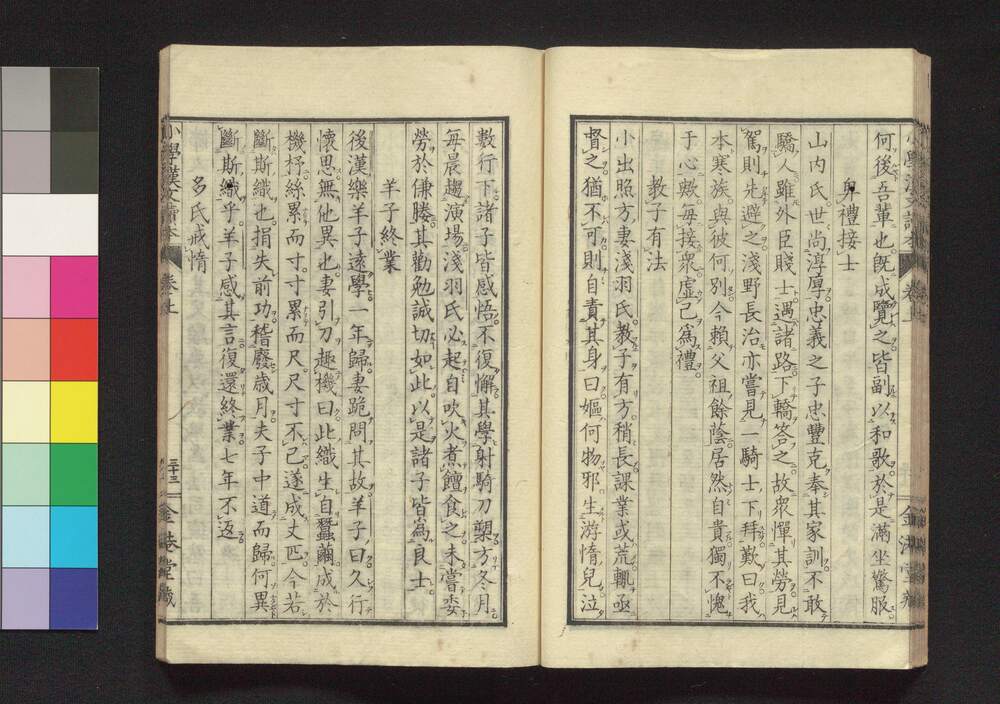 何後吾輩也既成覽之皆副以和歌於是滿坐驚服
卑禮接士
山内氏世尚淳厚忠義之子忠豐克奉其家訓不敢
驕人雖外臣賤士遇諸路下轎答之故衆憚其勞見
駕則先避之淺野長治亦嘗見一騎士下拜歎曰我
本寒族與彼何別今賴父祖餘蔭居然自貴獨不愧
于心歟毎接衆虛己爲禮
教子有法
小出照方妻淺羽氏教子有方稍長課業或荒輒亟
督之猶不可則自責其身曰嫗何物邪生游惰兒泣
數行下諸子皆感悟不復懈其學射騎刀槊方冬月
毎晨趨演場淺羽氏必起自吹火煮饘食之未嘗委
勞於傔媵其勸勉誠切如此以是諸子皆爲良士
羊子終業
後漢樂羊子遠學一年歸妻跪問其故羊子曰久行
懷思無他異也妻引刀趣機曰此織生自蠶繭成於
機杼絲累而寸寸累而尺尺寸不已遂成丈匹今若
斷斯織也捐失前功稽廢歲月夫子中道而歸何異
斷斯織乎羊子感其言復還終業七年不返
多氏戒惰
小學漢文讀本 卷上 三十三 金港堂藏